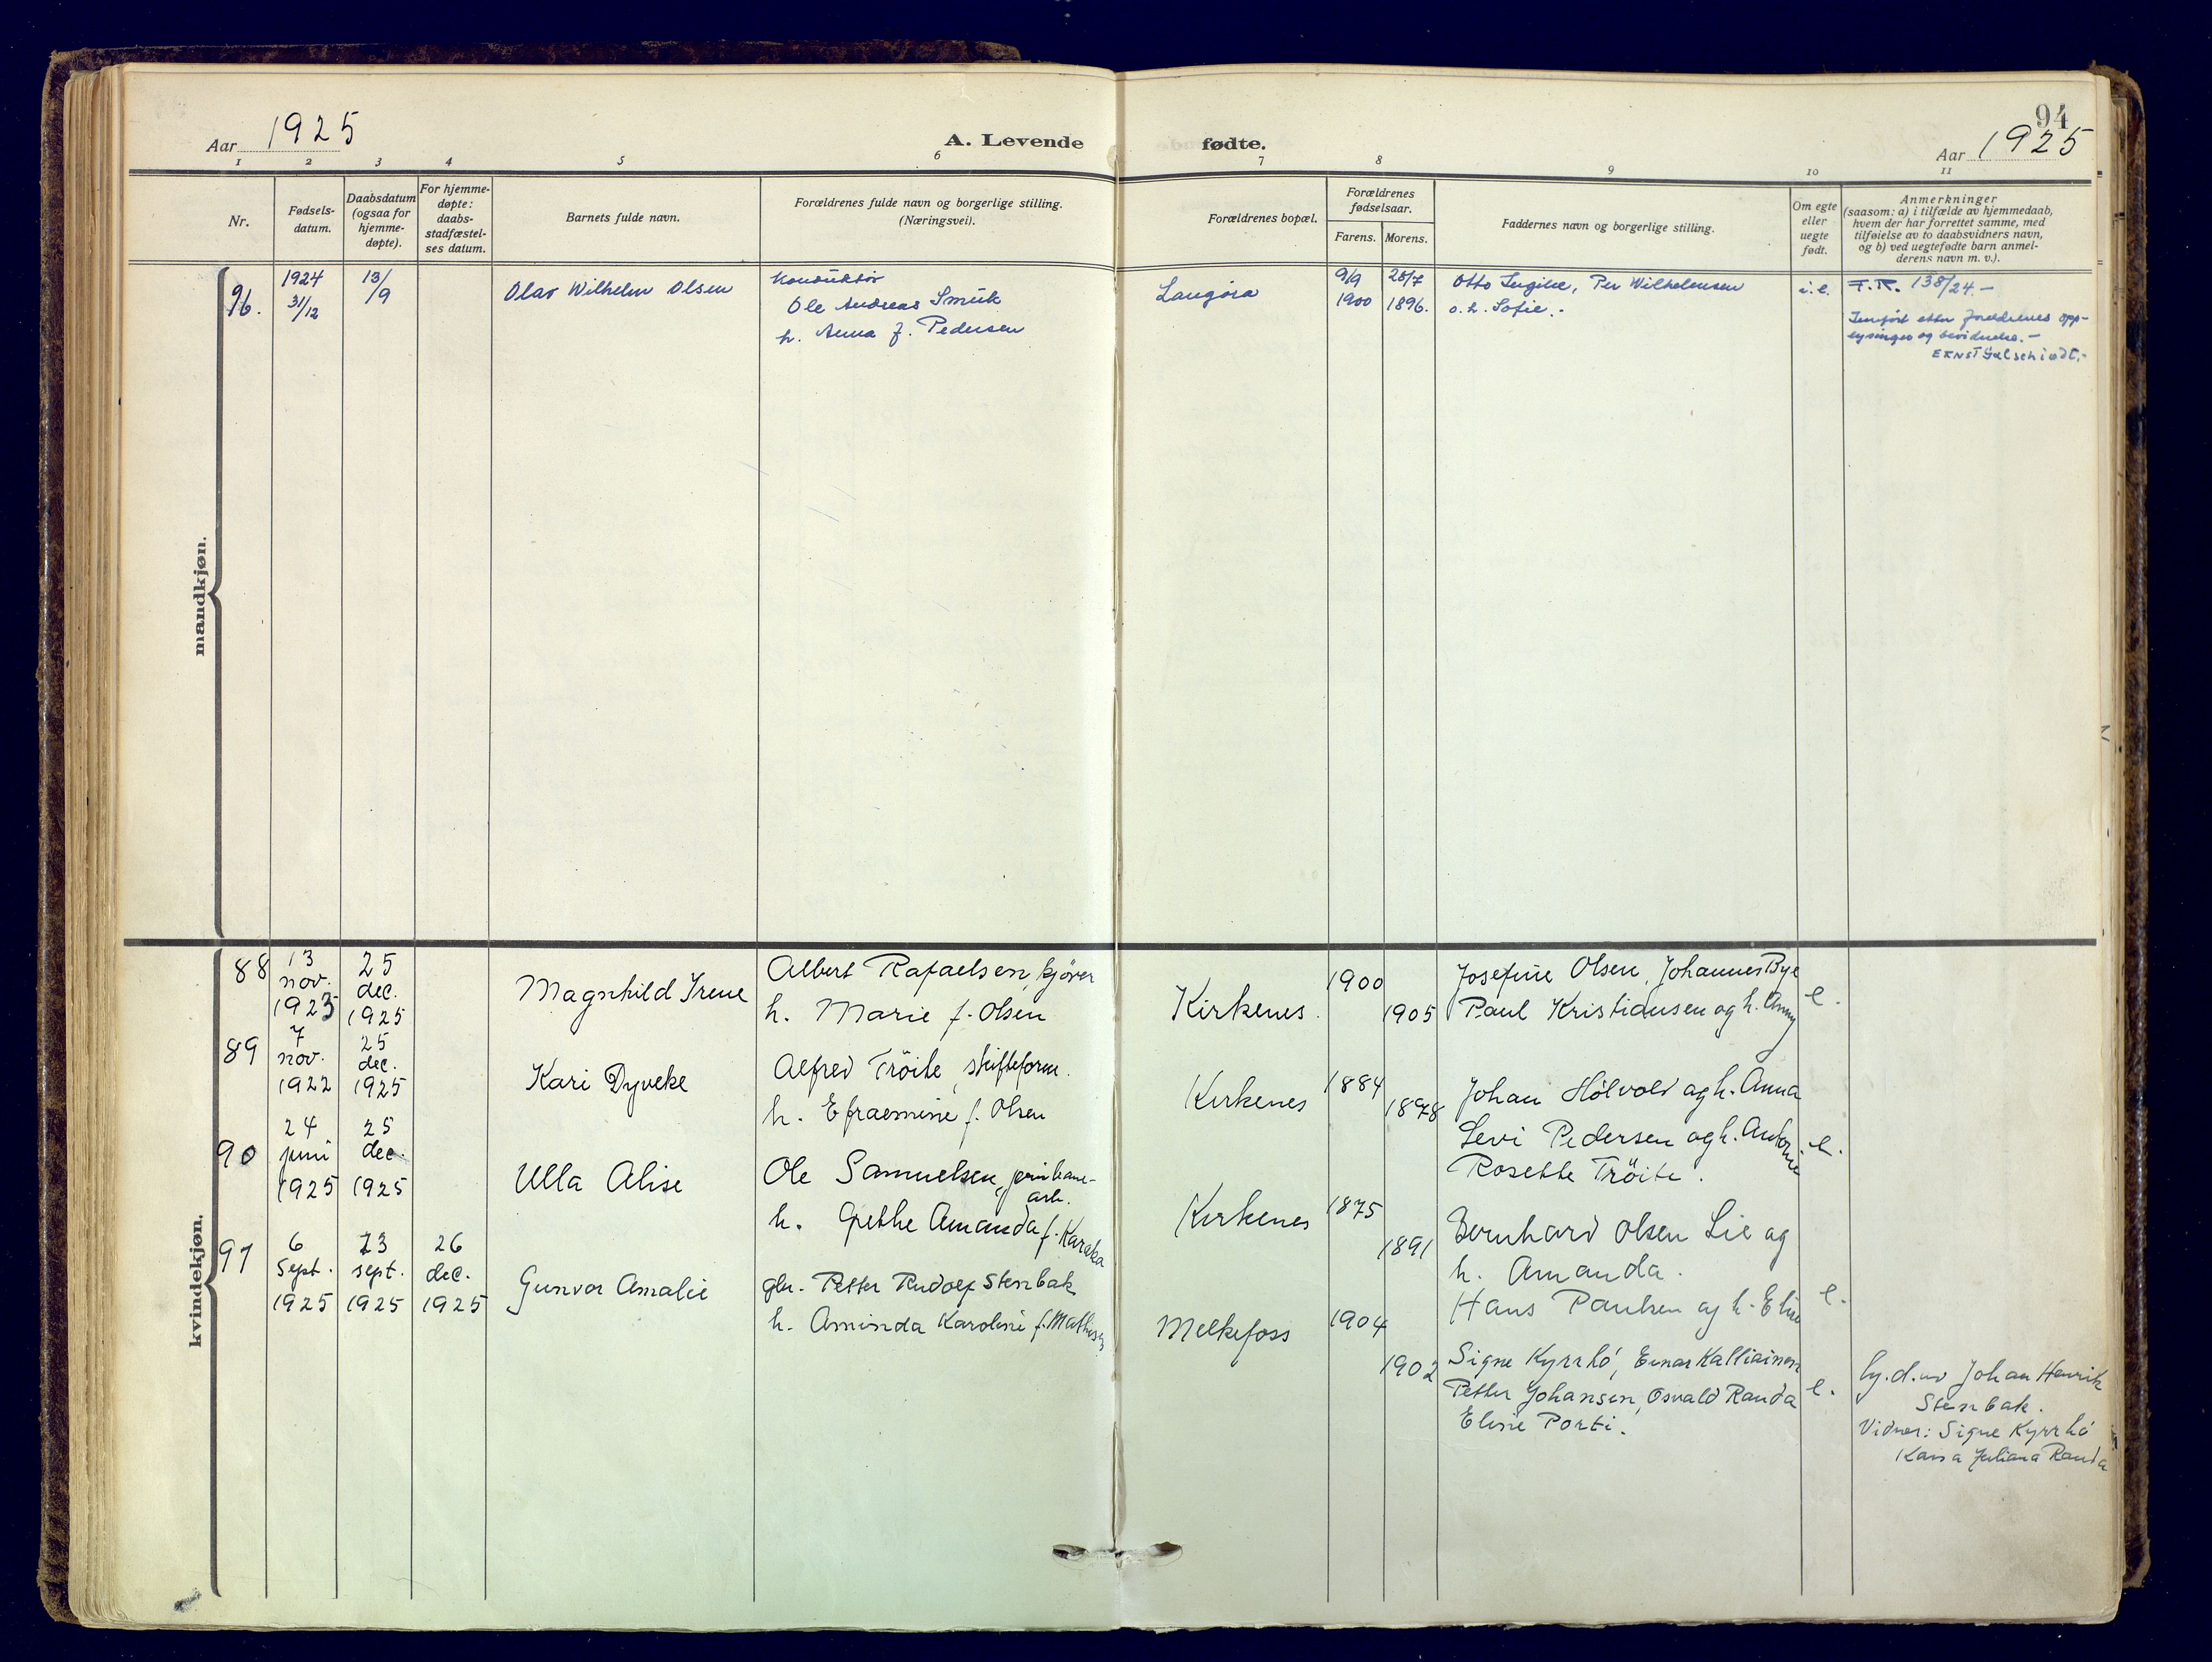 94
Aar 1925
A. Levende fødte.
Aar 1925
1 2 3 4 5 6 7 8 9 10 11
Nr.
Fødsels-
datum.
Daabsdatum
(ogsaa for
hjemme-
døpte).
For hjemme-
døpte:
daabs-
stadfæstel-
ses datum.
Barnets fulde navn.
Forældrenes fulde navn og borgerlige stilling.
(Næringsvei).
Forældrenes bopæl.
Forældrenes
fødselsaar.
Farens. Morens.
Faddernes navn og borgerlige stilling.
Om egte
eller
uegte
født.
Anmerkninger
(saasom: a) i tilfælde av hjemmedaab,
hvem der har forrettet samme, med
tilføielse av to daabsvidners navn,
og b) ved uegtefødte barn anmel-
derens navn m. v.).
mandkjøn.
96.
1924
31/12
13/
/9
Olav Wilhelm Olsen
Konduktør
Ole Andreas Smuk
h. Anna f. Pedersen
Langøra
9/9
1900
28/7
1896.
Otto Ingilæ, Per Wilhelmsen
o. h. Sofie.
i.e.
F.R. 138/24.-
Innført etter foreldrenes opp-
lysninger og bevidnelse.-
ERNST Galschiødt.-
kvindekjøn.
88
13
nov.
1923
25
dec.
1925
Magnhild Irene
Albert Rafaelsen, kjører
h. Marie f. Olsen
Kirkenes.
1900
1905
Josefine Olsen, Johannes Bye
Paul Kristiansen og h. Anny
e.
89
7
nov.
1922
25
dec.
1925
Kari Dyveke
Alfred Tröite, skifteform.
h. Efraemine f. Olsen
Kirkenes
1884
1878
Johan Hölvold og h. Anna
Levi Pedersen og h. Antonie
Rosette Tröite.
e.
90
24
juni
1925
25
dec.
1925
Ulla Alise
Ole Samuelsen, jernbane-
arb.
h. Grethe Amanda f. Karaka
Kirkenes
1875
1891
Bernhard Olsen Lie og
h. Amanda.
Hans Paulsen og h. Elise
e.
91
6
sept.
1925
13
sept.
1925
26
dec.
1925
Gunvor Amalie
gbr. Petter Rudolf Stenbak
h. Aminda Karoline f. Mathisen
Melkefoss
1904
1902
Signe Kyrrhö, Einar Kalliainen
Petter Johansen, Osvald Randa
Eline Porti.
e.
hj.d. av Johan Henrik
Stenbak.
Vidner: Signe Kyrrhö
Kaisa Juliana Randa